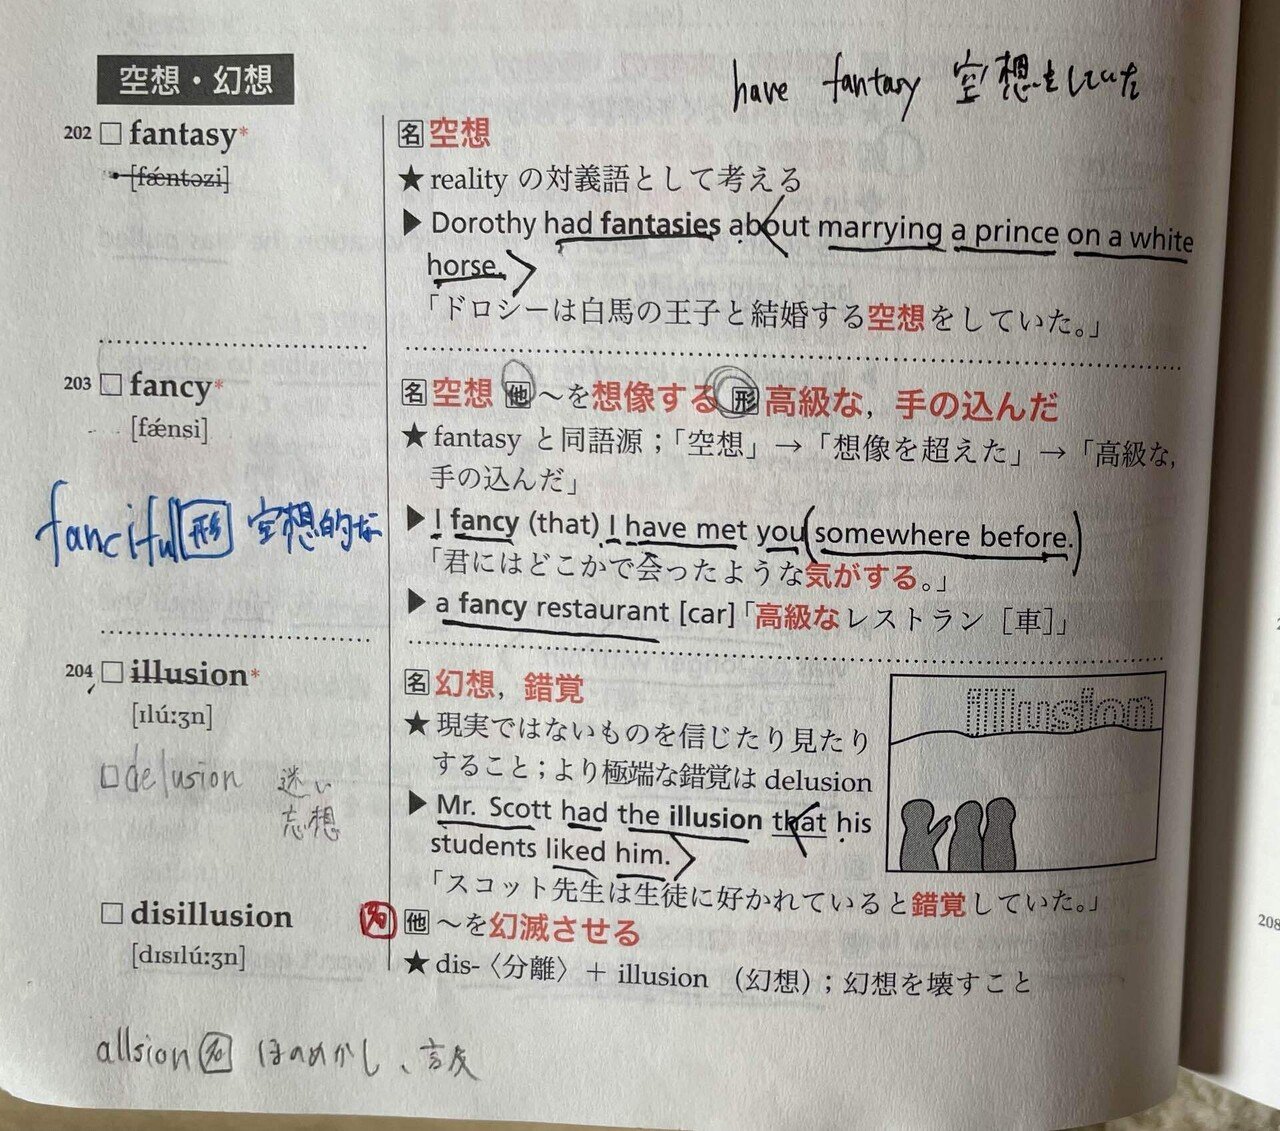 空想・幻想
have fantasy 空想をしていた
202 □ fantasy*
[fǽntəzi]
名 空想
★ reality の対義語として考える
▶ Dorothy had fantasies about marrying a prince on a white
horse.
「ドロシーは白馬の王子と結婚する空想をしていた。」
203 □ fancy*
[fǽnsi]
fanciful 形 空想的な
名 空想 他 〜を想像する 形 高級な，手の込んだ
★ fantasy と同語源；「空想」→「想像を超えた」→「高級な，
手の込んだ」
▶ I fancy (that) I have met you (somewhere before.)
「君にはどこかで会ったような気がする。」
▶ a fancy restaurant [car]「高級なレストラン［車］」
204 □ illusion*
[ɪlúːʒn]
□delusion 迷い
忘想
名 幻想，錯覚
★ 現実ではないものを信じたり見たり
すること；より極端な錯覚は delusion
▶ Mr. Scott had the illusion that his
students liked him.
「スコット先生は生徒に好かれていると錯覚していた。」
illusion
□ disillusion
[dɪsɪlúːʒn]
名 他 〜を幻滅させる
★ dis-〈分離〉＋ illusion （幻想）；幻想を壊すこと
allsion 名 ほのめかし、言及
208